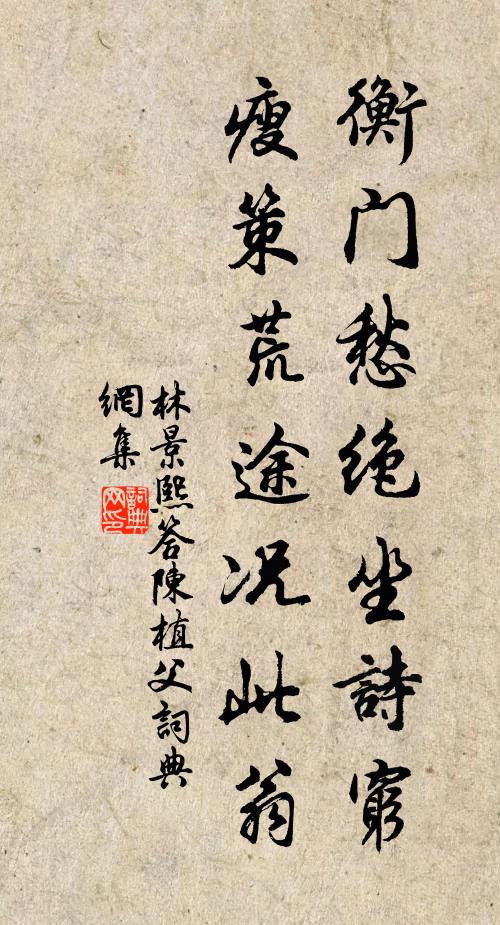 衡门愁绝坐詩窮
瘦策荒途况此翁
林景熙答陳植父詞典
網集
詞典
网印